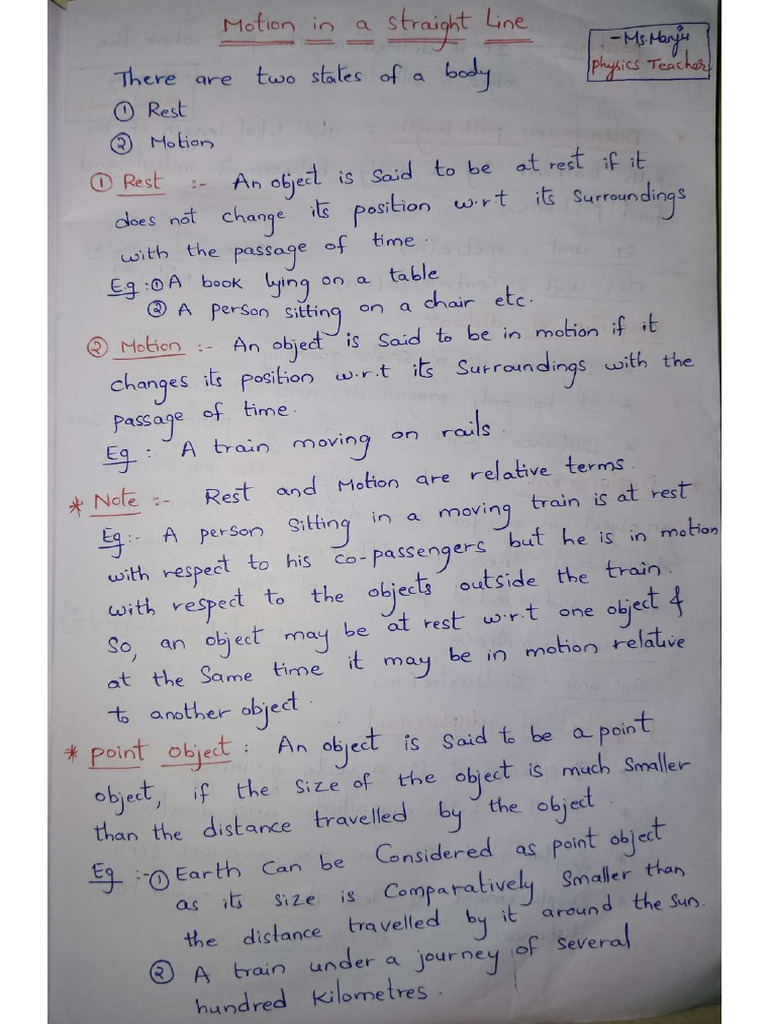 Motion in a straight Line
- Ms. Manju
Physics Teacher
There are two states of a body
① Rest
② Motion
① Rest :- An object is said to be at rest if it
does not change its position w.r.t its surroundings
with the passage of time.
Eg :① A book lying on a table
② A person sitting on a chair etc.
② Motion :- An object is said to be in motion if it
changes its position w.r.t its surroundings with the
passage of time.
Eg : A train moving on rails.
* Note :- Rest and Motion are relative terms.
Eg :- A person sitting in a moving train is at rest
with respect to his co-passengers but he is in motion
with respect to the objects outside the train.
So, an object may be at rest w.r.t one object &
at the same time it may be in motion relative
to another object.
* Point object : An object is said to be a point
object, if the size of the object is much smaller
than the distance travelled by the object.
Eg :- ① Earth can be considered as point object
as its size is comparatively smaller than
the distance travelled by it around the sun.
② A train under a journey of several
hundred kilometres.